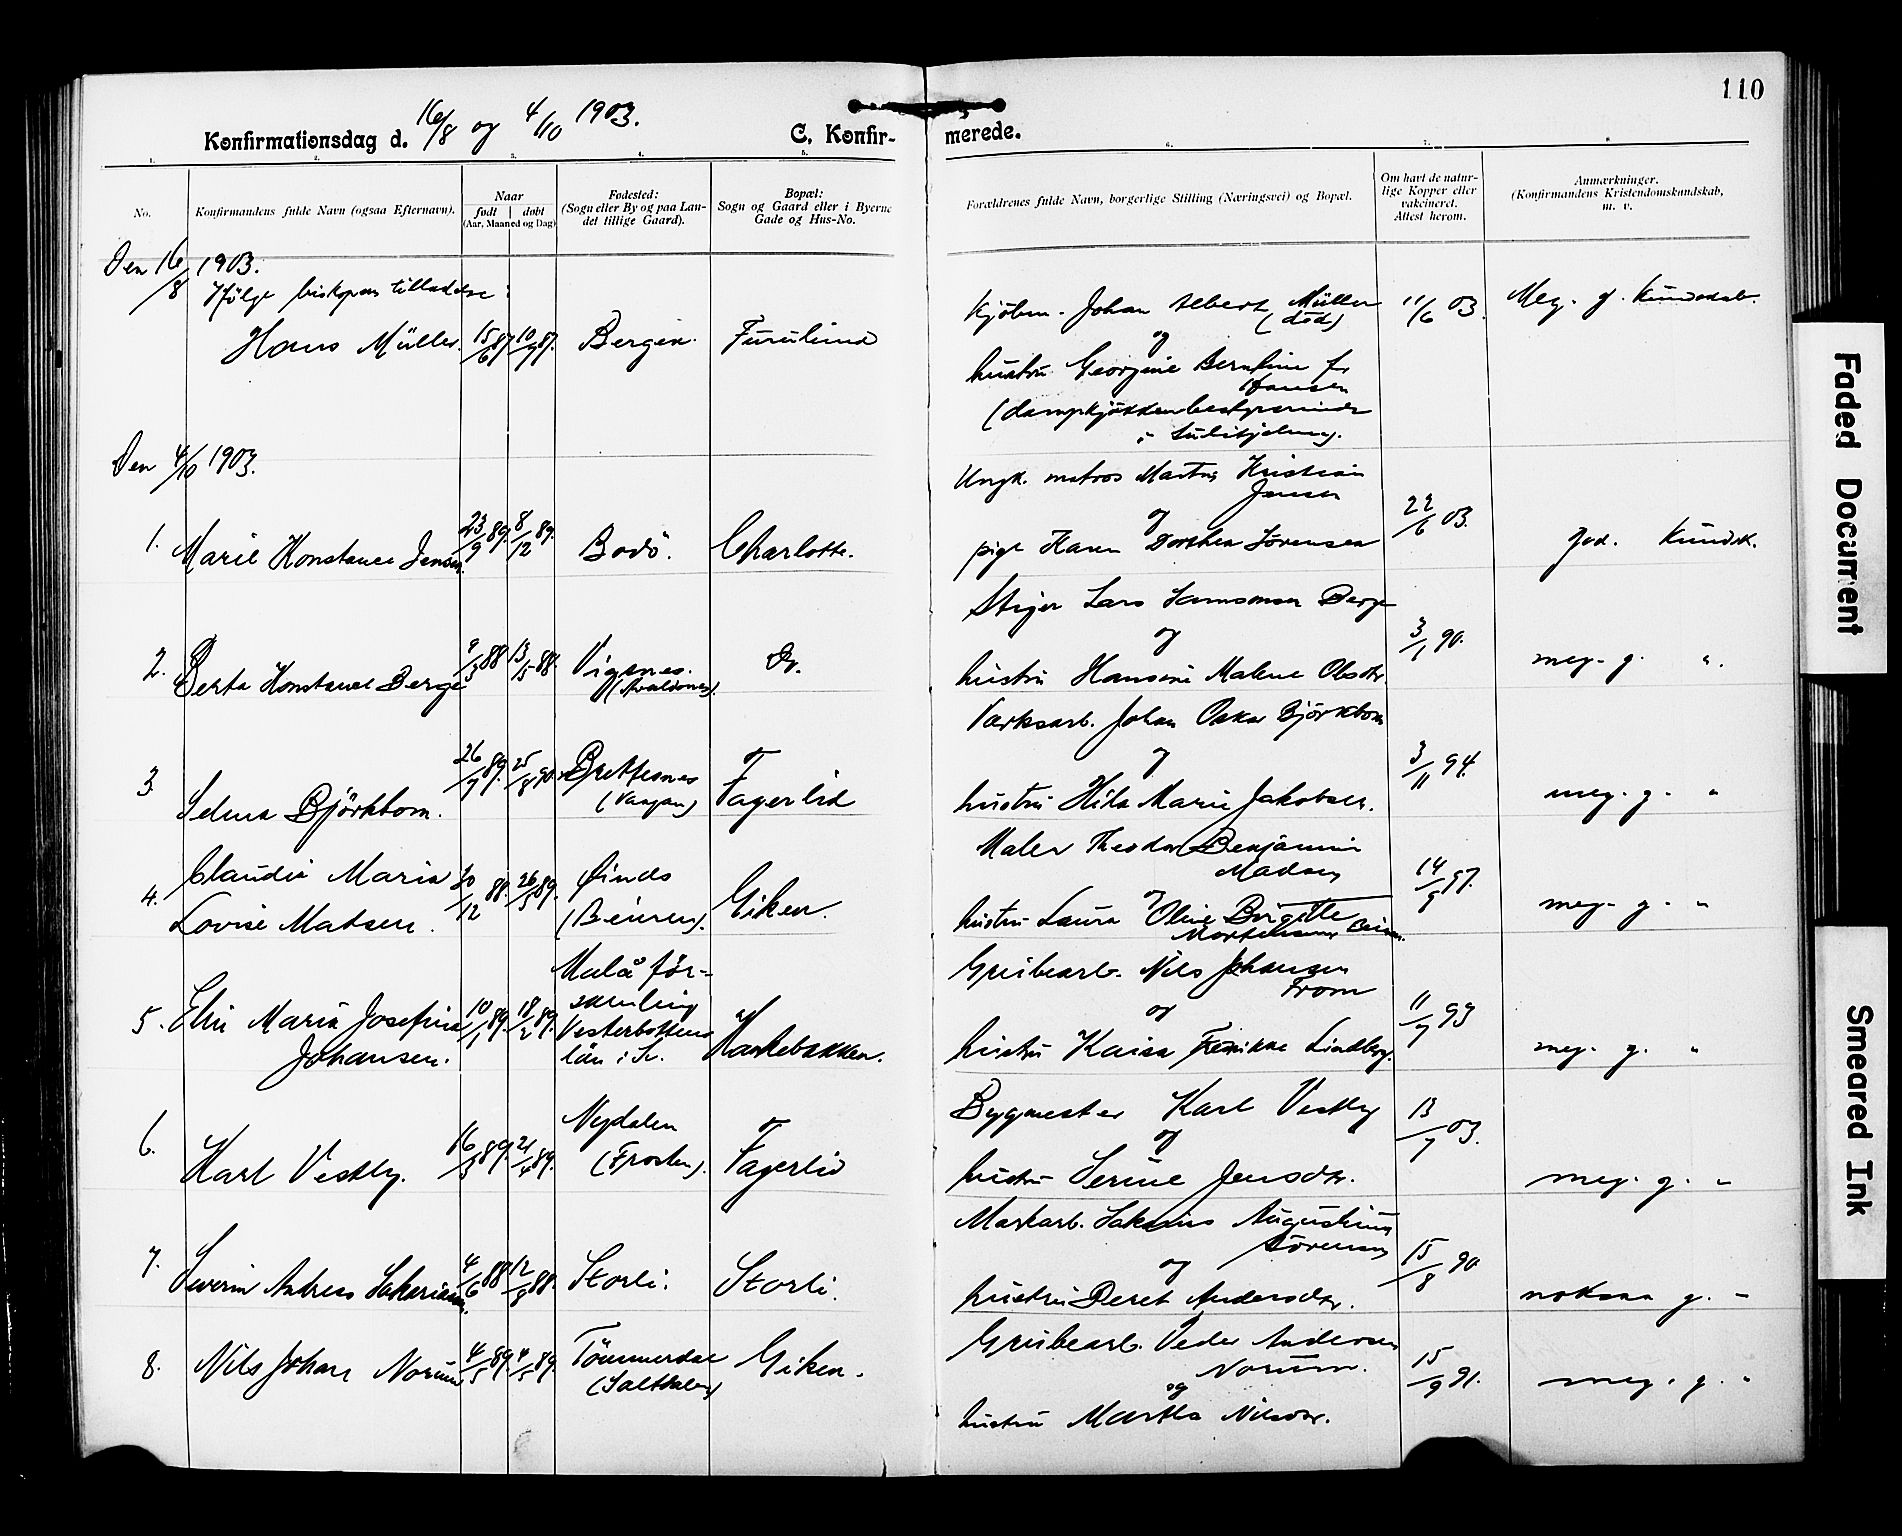 110
Konfirmationsdag d. 16/8 og 4/10 1903.
C. Konfir- merede.
1. 2. 3. 4. 5. 6. 7. 8.
No.
Konfirmandens fulde Navn (ogsaa Efternavn).
Naar
født | døbt
(Aar, Maaned og Dag)
Fødested:
(Sogn eller By og paa Lan-
det tillige Gaard).
Bopæl:
Sogn og Gaard eller i Byerne
Gade og Hus-No.
Forældrenes fulde Navn, borgerlige Stilling (Næringsvei) og Bopæl.
Om havt de natur-
lige Kopper eller
vakcineret.
Attest herom.
Anmærkninger.
(Konfirmandens Kristendomskundskab,
m. v.
Den 16/8 1903.
Ifölge biskopens tilladelse:
Hans Müller. 15/6 87. 10/7 87. Bergen. Furulund
Kjöbm. Johan Albert Müller
(död)
og
hustru Georgine Bernhine f.
Hansen
(dampkjökkenbestyrerinde
i Sulitjelma).
11/6 03.
Meg. g. kundskab.
Den 4/10 1903.
1. Marie Konstance Jensen. 23/9 89. 8/12 89. Bodö. Charlotte.
Ungk. matros Martin Kristian
Jensen
og
pige Karen Dorthea Sörensen
22/6 03.
god. Kundsk.
2. Berta Konstanse Berge 9/3 88 13/5 88. Vigsnes.
(Avaldsnes). Do.
Stiger Lars Samsonsen Berge
og
hustru Hansine Malene Olsdtr.
3/1 90.
meg. g. "
3. Selma Björkbom. 26/9 89. 25/8 90. Brettesnes
(Vaagan) Fagerlid
Værksarb. Johan Oskar Björkbom
og
hustru Hilda Marie Jakobsen.
3/11 94.
meg. g. "
4. Claudia Maria
Lovise Madsen. 30/12 88. 26/5 89.
(Beiaren). Giken.
Maler Theodor Benjamin
Madsen
og
hustru Laura Oline Birgitte
Mortensen
14/9 97.
meg. g. "
5. Elin Maria Josefina
Johansen. 10/1 89. 18/2 89. Malå för-
samling
Vesterbottens
län i Sv. Hankebakken.
Grubearb. Nils Johansen
From
og
hustru Kaisa Fredrikke Lindberg.
11/7 93
meg. g. "
6. Karl Vestby. 16/3 89. 21/4 89. Nydalen
(Frosten). Fagerlid
Bygmester Karl Vestby
og
hustru Serine Jensdtr.
13/7 03.
meg. g. "
7. Severin Andreas Sakariassen. 4/6 88 12/8 88. Storli. Storli.
Markarb. Sakarias Augustinus
Sörensen
og
hustru Beret Andersdtr.
15/8 90
noksaa g. "
8. Nils Johan Norum 4/5 89. 4/5 89. Tömmerdal
(Saltdalen) Giken.
Grubearb. Peder Andersen
Norum.
og
hustru Martha Nilsdtr.
15/9 91.
meg. g. "
Faded Document
Smeared Ink